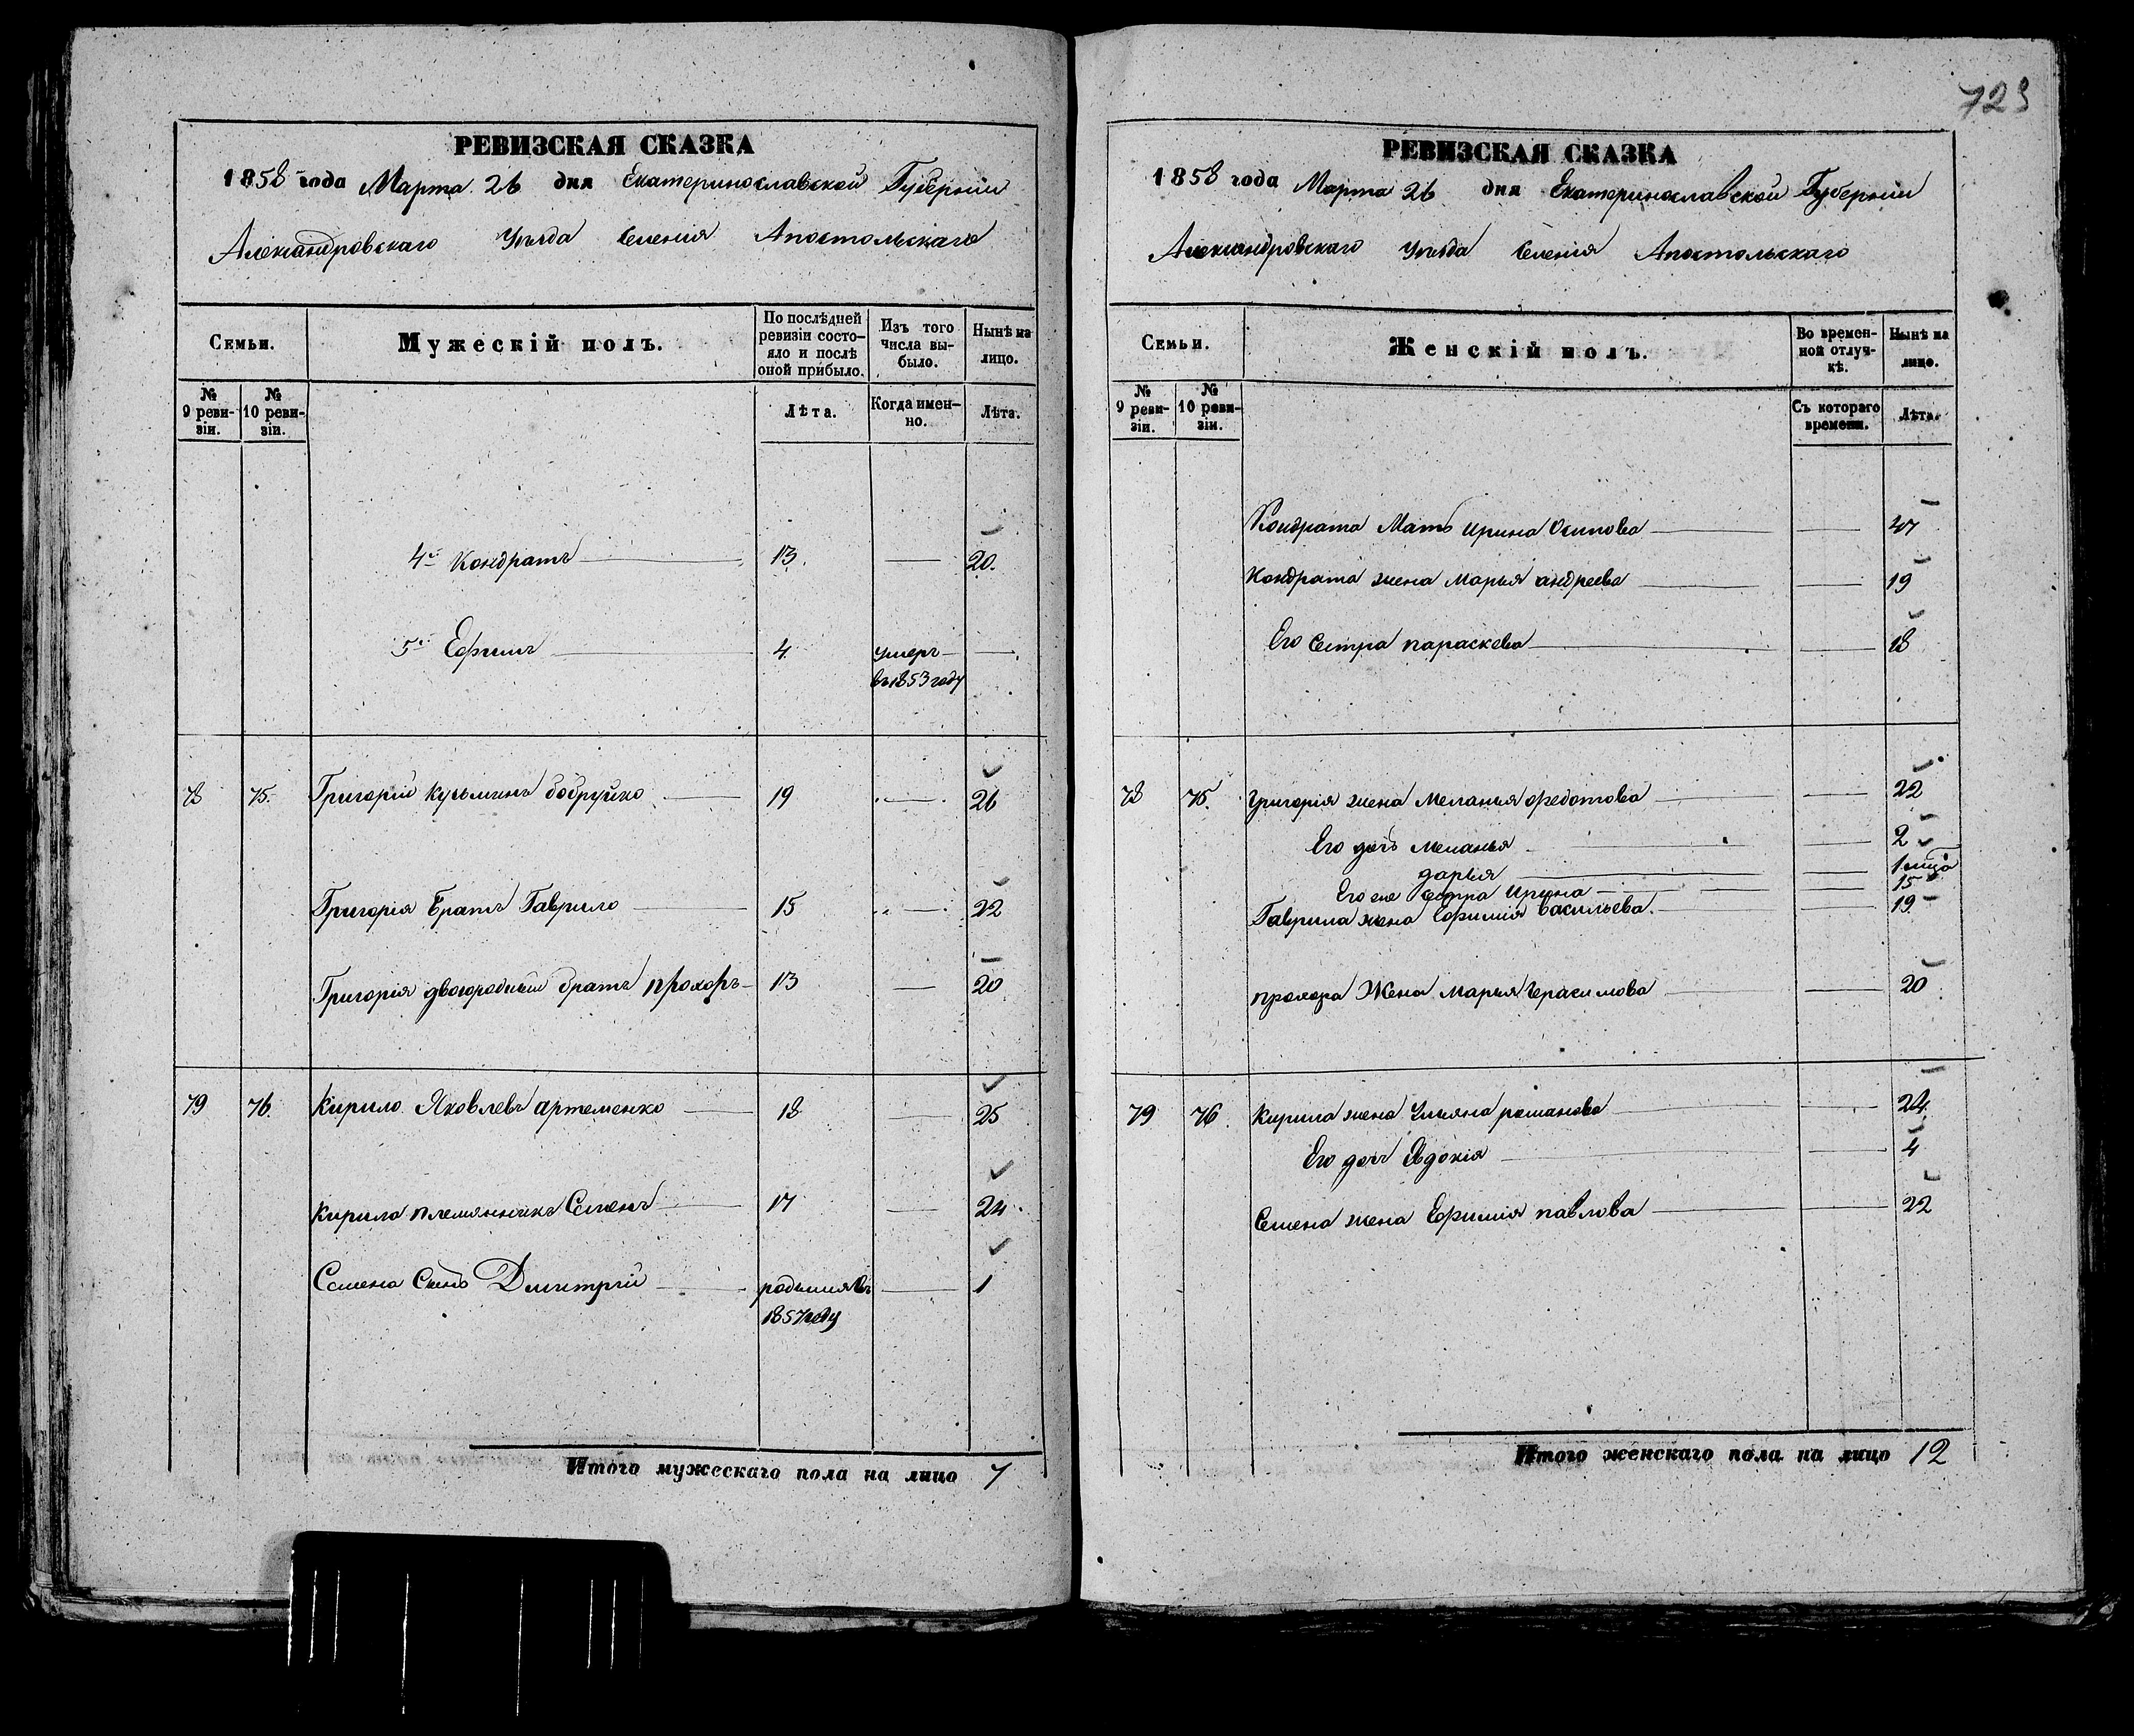 723
РЕВИЗСКАЯ СКАЗКА
1858 года Марта 26 дня Екатеринославской Губерніи
Александровскаго Уѣзда Селенія Апостольскаго
Семьи.
Мужескій полъ.
По послѣдней ревизіи состояло и послѣ оной прибыло.
Изъ того числа выбыло.
Нынѣ на лицо.
№ 9 ревизіи.
№ 10 ревизіи.
Лѣта.
Когда именно.
Лѣта.
4й Кондратъ 13. 20.
5й Ефимъ 4 умеръ
въ 1853 году
78 75. Григорій Кузьминъ бобруйко 19 26
Григорія Братъ Гаврило 15 22
Григорія двоюродный братъ прохоръ 13 20
79 76. Кирило Яковлевъ артеменко 18 25
Кирила племянникъ Семенъ 17 24.
Семена Сынъ Дмитрій родился въ 1
1857 году
Итого мужескаго пола на лицо 7
РЕВИЗСКАЯ СКАЗКА
1858 года Марта 26 дня Екатеринославской Губерніи
Александровскаго Уѣзда Селенія Апостольскаго
Семьи.
Женскій полъ.
Во временной отлучкѣ.
Нынѣ на лицо.
№ 9 ревизіи.
№ 10 ревизіи.
Съ котораго времени.
Лѣта.
Кондрата Мать Ирина Осипова 47
Кондрата жена Марья андреева 19
Его Сестра параскева 18
78 75. Григорія жена Меланья федотова 22
Его дочь Меланья 2
дарья 1 мѣца
Его же сестра Ирина 15
Гаврила жена Ефимія Васильева. 19
прохора Жена Марья Герасимова 20
79 76. Кирила жена Ульяна романова 24
Его дочь Явдокія 4
Семена жена Ефимія павлова 22
Итого женскаго пола на лицо 12